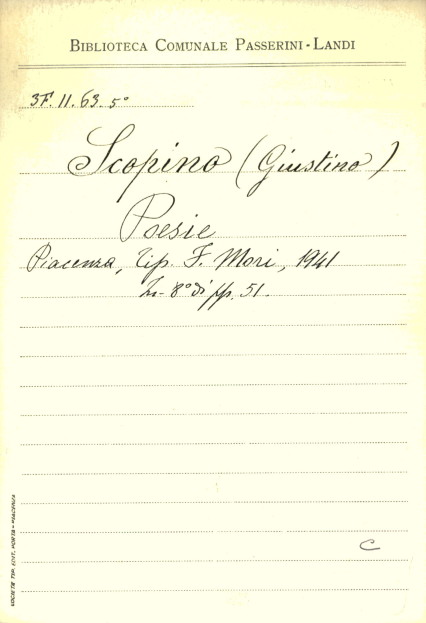 BIBLIOTECA COMUNALE PASSERINI-LANDI
3F. II. 63. 5°
Scopino (Giustino)
Poesie
Piacenza, Tip. F. Mori, 1941
In-8° di pp. 51.
C